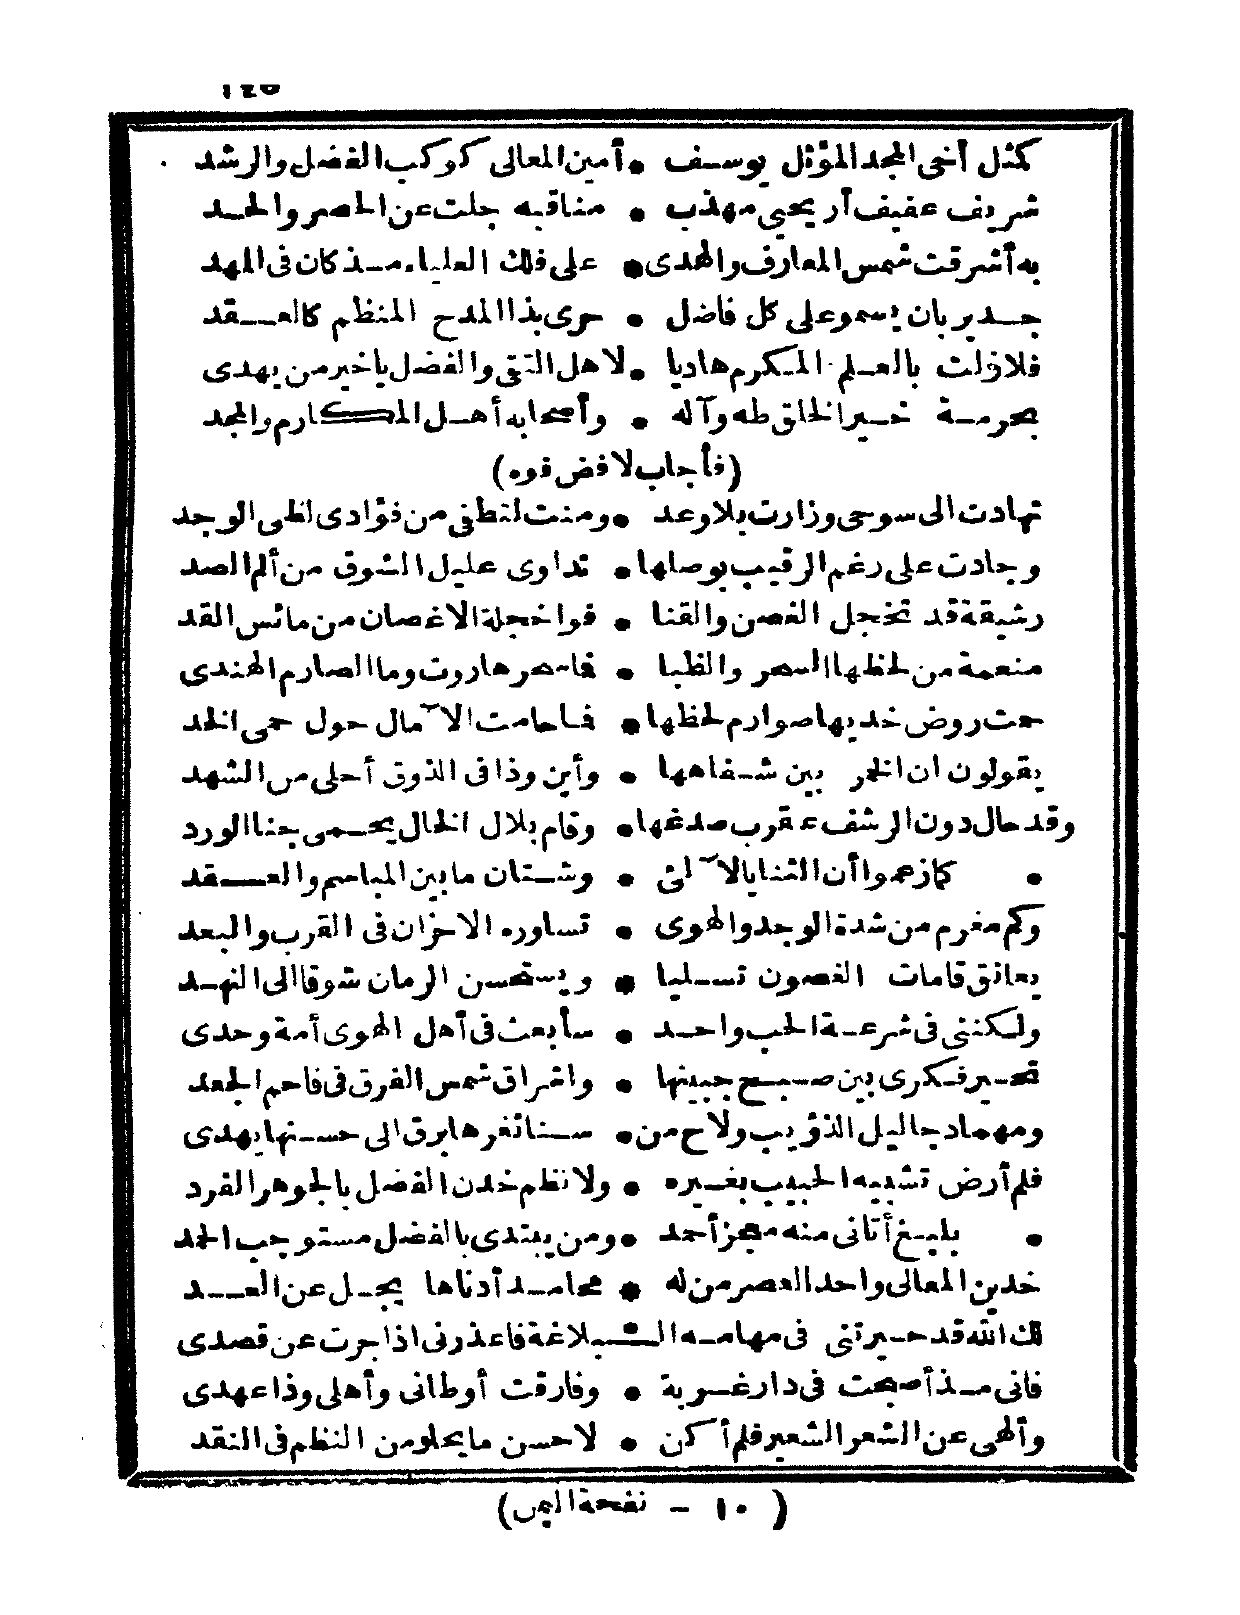 ١٤٥
كمثل أخى المجد المؤثل يوسف • أمين المعالى كوكب الفضل والرشد
شريف عفيف أريحى مهذب • مناقبه جلت عن الحصر والحد
به أشرقت شمس المعارف والهدى • على فلك العلياء مذ كان فى المهد
جدير بان يسمو على كل فاضل • حرى بذا المدح المنظم كالعقد
فلا زلت بالعلم المكرم هاديا • لاهل التقى والفضل يا خير من يهدى
بحرمة خير الخلق طه وآله • وأصحابه أهل المكارم والمجد
(فأجاب لا فض فوه)
تهادت الى سوحى وزارت بلا وعد • ومنت لتطفى من فؤادى لظى الوجد
وجادت على رغم الرقيب بوصلها • تداوى عليل الشوق من ألم الصد
رشيقة قد تخجل الغصن والقنا • فواخجلة الاغصان من مائس القد
منعمة من لحظها السحر والظبا • فما سحر هاروت وما الصارم الهندى
حمت روض خديها صوارم لحظها • فحامت الآمال حول حمى الخد
يقولون ان الخمر بين شفاهها • وأين وذا فى الذوق أحلى من الشهد
وقد حال دون الرشف عقرب صدغها • وقام بلال الخال يحمى جنا الورد
• كما زعموا أن الثنايا لآلئ • وشتان ما بين المباسم والعقد
وكم مغرم من شدة الوجد والهوى • تساوره الاحزان فى القرب والبعد
يعانق قامات الغصون تسليا • ويستحسن الرمان شوقا الى النهد
ولكننى فى شرعة الحب واحد • سأبعث فى أهل الهوى أمة وحدى
تحير فكرى بين صبح جبينها • واشراق شمس الفرق فى فاحم الجعد
ومهما دجا ليل الذؤيب ولاح من • سنا ثغرها برق الى حسنها يهدى
فلم أرض تشبيه الحبيب بغيره • ولا نظم خدن الفضل بالجوهر الفرد
• بليغ أتانى منه معجز أحمد • ومن يبتدى بالفضل مستوجب الحمد
خدين المعالى واحد العصر من له • محامد أدناها يجل عن العد
لك الله قد حيرتنى فى مهامه البلاغة فاعذرنى اذا جرت عن قصدى
فانى مذ أصبحت فى دار غربة • وفارقت أوطانى وأهلى وذا عهدى
وألهى عن الشعر الشعير فلم أكن • لاحسن ما يحلو من النظم فى النقد
( ١٠ - نفحة اليمن)